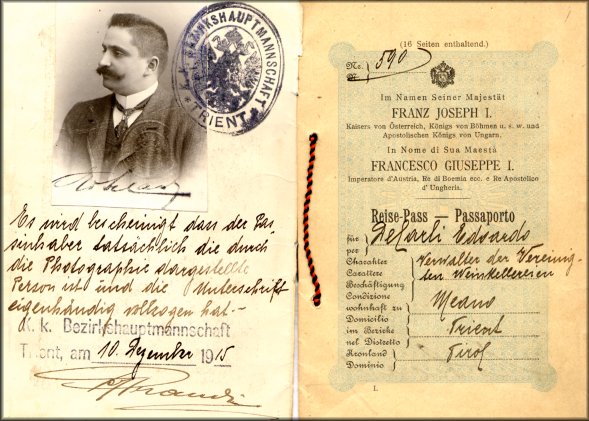 K. k. BEZIRKSHAUPTMANNSCHAFT
TRIENT
Es wird bescheinigt dass der Pas-
sinhaber tatsächlich die durch
die Photographie dargestellte
Person ist und die Unterschrift
eigenhändig vollzogen hat.-
K. k. Bezirkshauptmannschaft
Trient, am 10. Dezember 1915
(16 Seiten enthaltend.)
No. 590
Im Namen Seiner Majestät
FRANZ JOSEPH I.
Kaisers von Österreich, Königs von Böhmen u. s. w. und
Apostolischen Königs von Ungarn.
In Nome di Sua Maestà
FRANCESCO GIUSEPPE I.
Imperatore d'Austria, Re di Boemia ecc. e Re Apostolico
d'Ungheria.
Reise-Pass — Passaporto
für
per
DeCarli Edoardo
Charakter
Carattere
Beschäftigung
Condizione
Verwalter der Vereinig-
ten Weinkellereien
wohnhaft zu
Domicilio
Meano
im Bezirke
nel Distretto
Trient
Kronland
Dominio
Tirol
I.